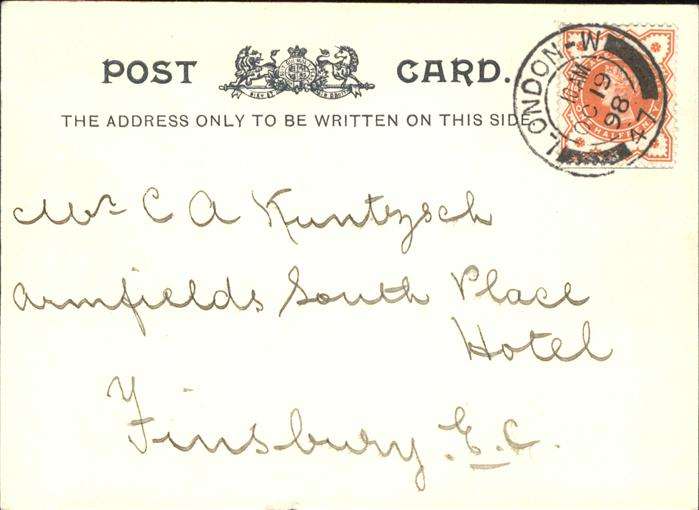 POST CARD.
THE ADDRESS ONLY TO BE WRITTEN ON THIS SIDE
LONDON-W
10 AM
OC 19
98
47
Mr C A Kuntzsch
Armfields South Place
Hotel
Finsbury. E. C.